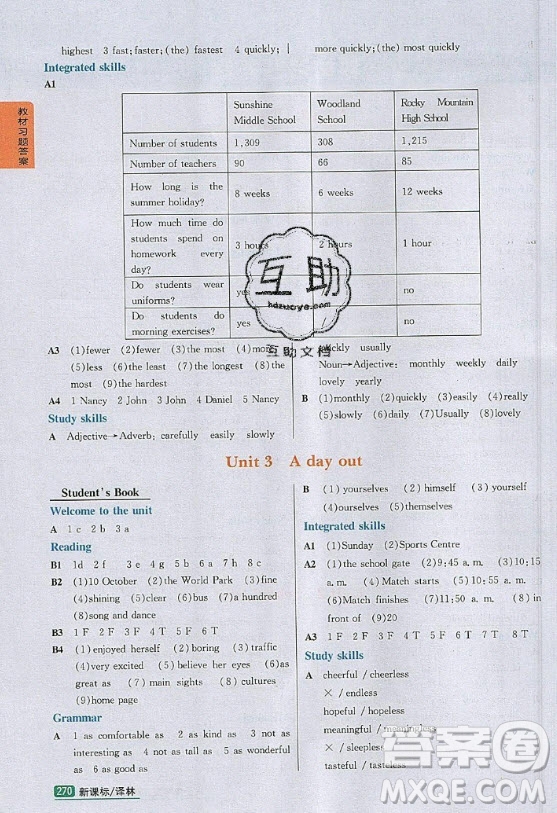 highest 3 fast; faster; (the) fastest 4 quickly;
more quickly; (the) most quickly
Integrated skills
A1
Sunshine Middle School
Woodland School
Rocky Mountain High School
Number of students 1,309 308 1,215
Number of teachers 90 66 85
How long is the summer holiday? 8 weeks 6 weeks 12 weeks
How much time do students spend on homework every day? 3 hours 2 hours 1 hour
Do students wear uniforms? yes no
Do students do morning exercises? yes / no
A3 (1)fewer (2)fewer (3)the most (4)more
(5)less (6)the least (7)the longest (8)the
most (9)the hardest
A4 1 Nancy 2 John 3 John 4 Daniel 5 Nancy
Study skills
A Adjective→Adverb: carefully easily slowly
quickly usually
Noun→Adjective: monthly weekly daily
lovely yearly
B (1)monthly (2)quickly (3)easily (4)really
(5)slowly (6)daily (7)Usually (8)lovely
Unit 3 A day out
Student's Book
Welcome to the unit
A 1c 2b 3a
Reading
B1 1d 2f 3e 4b 5a 6c
B2 (1)10 October (2)the World Park (3)fine
(4)shining (5)clear (6)bus (7)a hundred
(8)song and dance
B3 1F 2F 3F 4T 5F 6T
B4 (1)enjoyed herself (2)boring (3)traffic
(4)very excited (5)believe her eyes (6)as
great as (7)main sights (8)cultures
(9)home page
Grammar
A 1 as comfortable as 2 as kind as 3 not as
interesting as 4 not as tall as 5 as wonderful
as 6 as good as
B (1)yourselves (2)himself (3)yourself
(4)ourselves (5)themselves
Integrated skills
A1 (1)Sunday (2)Sports Centre
A2 (1)the school gate (2)9:45 a.m. (3)10:15
a.m. (4)Match starts (5)10:50 a.m.
(6)Match finishes (7)12:00 p.m. (8)in
front of (9)20
A3 1F 2T 3F 4F 5T 6F 7T 8T
Study skills
A cheerful / cheerless
× / endless
hopeful / hopeless
meaningful / meaningless
× / sleepless
tasteful / tasteless
教材习题答案
270 新课标/译林
互助
hdzuoye.com
互助文档
答案圈
MXQE.COM